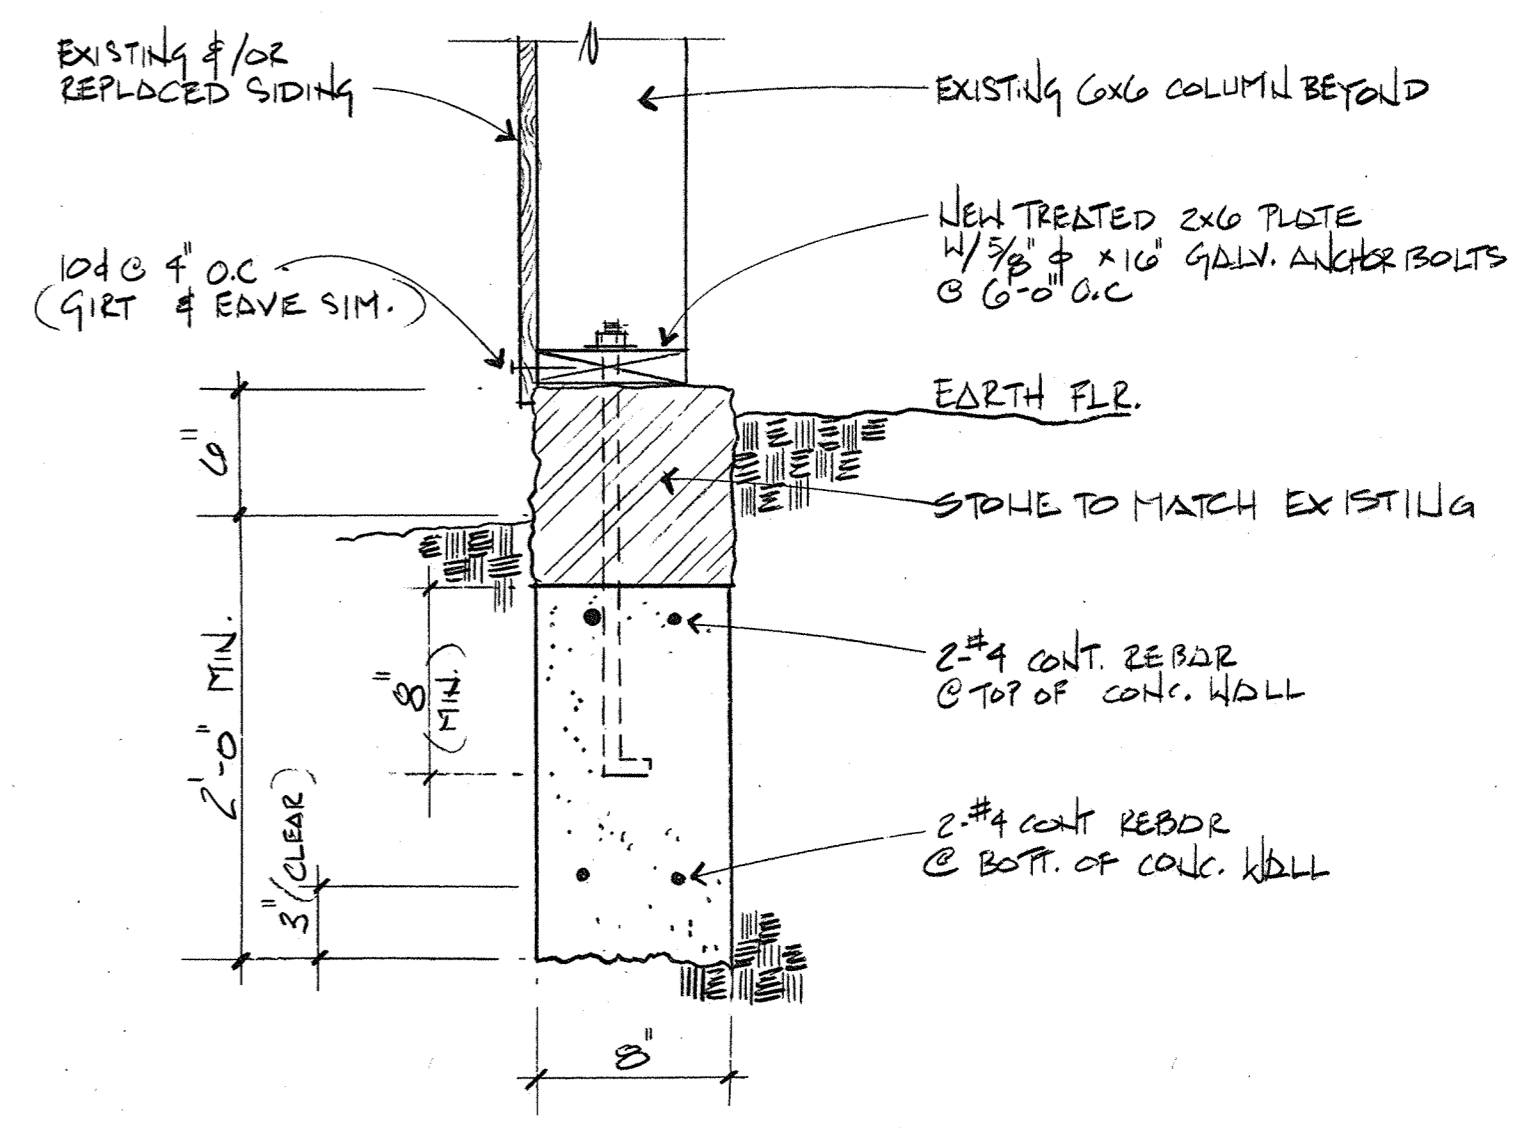 EXISTING &/OR
REPLACED SIDING
EXISTING 6x6 COLUMN BEYOND
NEW TREATED 2x6 PLATE
W/ 5/8" ϕ x 16" GALV. ANCHOR BOLTS
@ 6'-0" O.C
10d @ 4" O.C.
(GIRT & EAVE SIM.)
EARTH FLR.
6"
STONE TO MATCH EXISTING
2'-0" MIN.
8"
(MIN.)
2-#4 CONT. REBAR
@ TOP OF CONC. WALL
3" (CLEAR)
2-#4 CONT REBAR
@ BOTT. OF CONC. WALL
8"